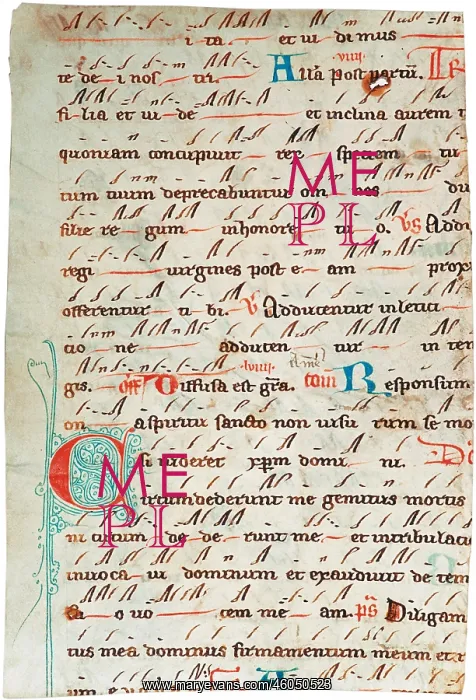 i ta et ui di mus
te de i nos tri. Alla Post partū. Tr
fi lia et ui de et inclina aurem t
quoniam concupiuit rex speciem tu
tum tuum deprecabuntur om nes du
filie re gum inhonore tu o. Vs Addu
regi uirgines post e am prox
offerentur ti bi. V Adducentur inletici
tio ne adducen tur in tem
gis. off Diffusa est gra. com Responsum
on aspiritu sancto non uisu rum se mo
si uideret xpm domi ni. D
Circumdederunt me gemitus mortis
et intribulatio
inuoca ui dominum et exaudiuit de tem
o uo cem me am. ps Diligam
tus mea dominus firmamentum meum et r
ME
PL
ME
PL
www.maryevans.com/46050528